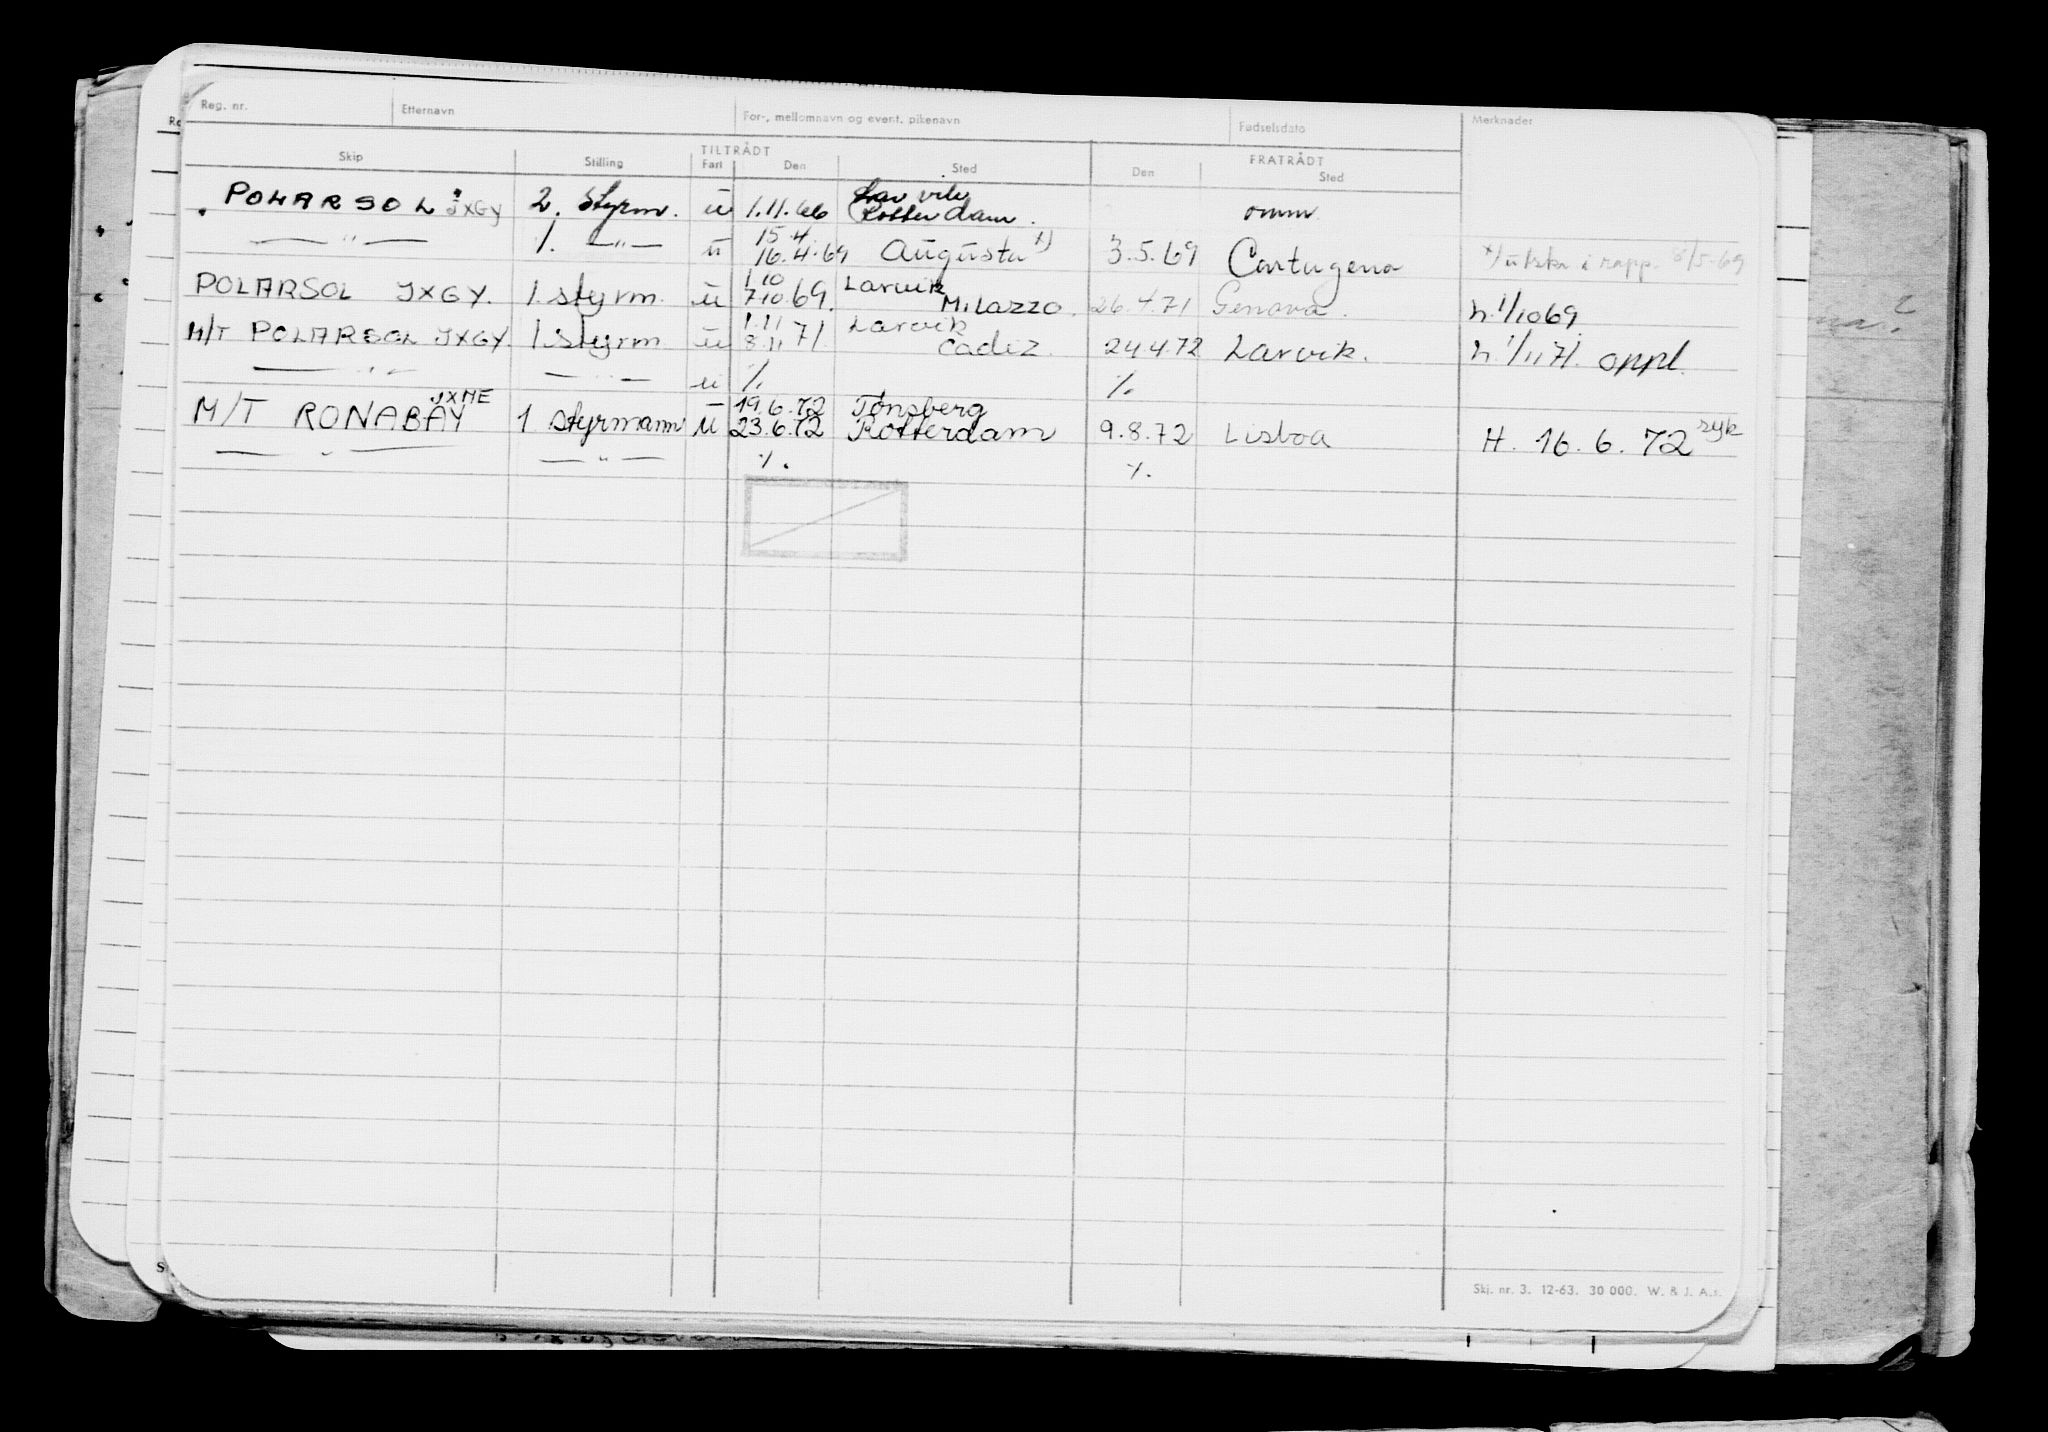 Reg. nr. Etternavn For-, mellomnavn og event. pikenavn Fødselsdato Merknader
TILTRÅDT FRATRÅDT
Skip Stilling Fart Den Sted Den Sted
POLARSOL JXGY 2. styrm. ü 1.11.66 Larvik Rotterdam. omm.
— " — 1. — " — ü 15.4 16.4.69 Augusta x) 3.5.69 Cartagena x) utskr i rapp. 8/5-69
POLARSOL JXGY. 1 styrm. ü 1.10 7.10.69. Larvik Milazzo. 26.4.71 Genova. h. 1/10 69.
M/T POLARSOL JXGY. 1 styrm ü 1.11 8.11 71. Larvik Cadiz. 24.4.72 Larvik. h. 1/11 71. oppl.
— " — — " — ü ٪ ٪
M/T RONABAY JXME 1 styrmann ü 19.6.72 23.6.72 Tönsberg Rotterdam 9.8.72 Lisboa H. 16.6.72 syk
— " — — " — ٪. ٪.
Skj. nr. 3. 12-63. 30 000. W. & J. A.s.